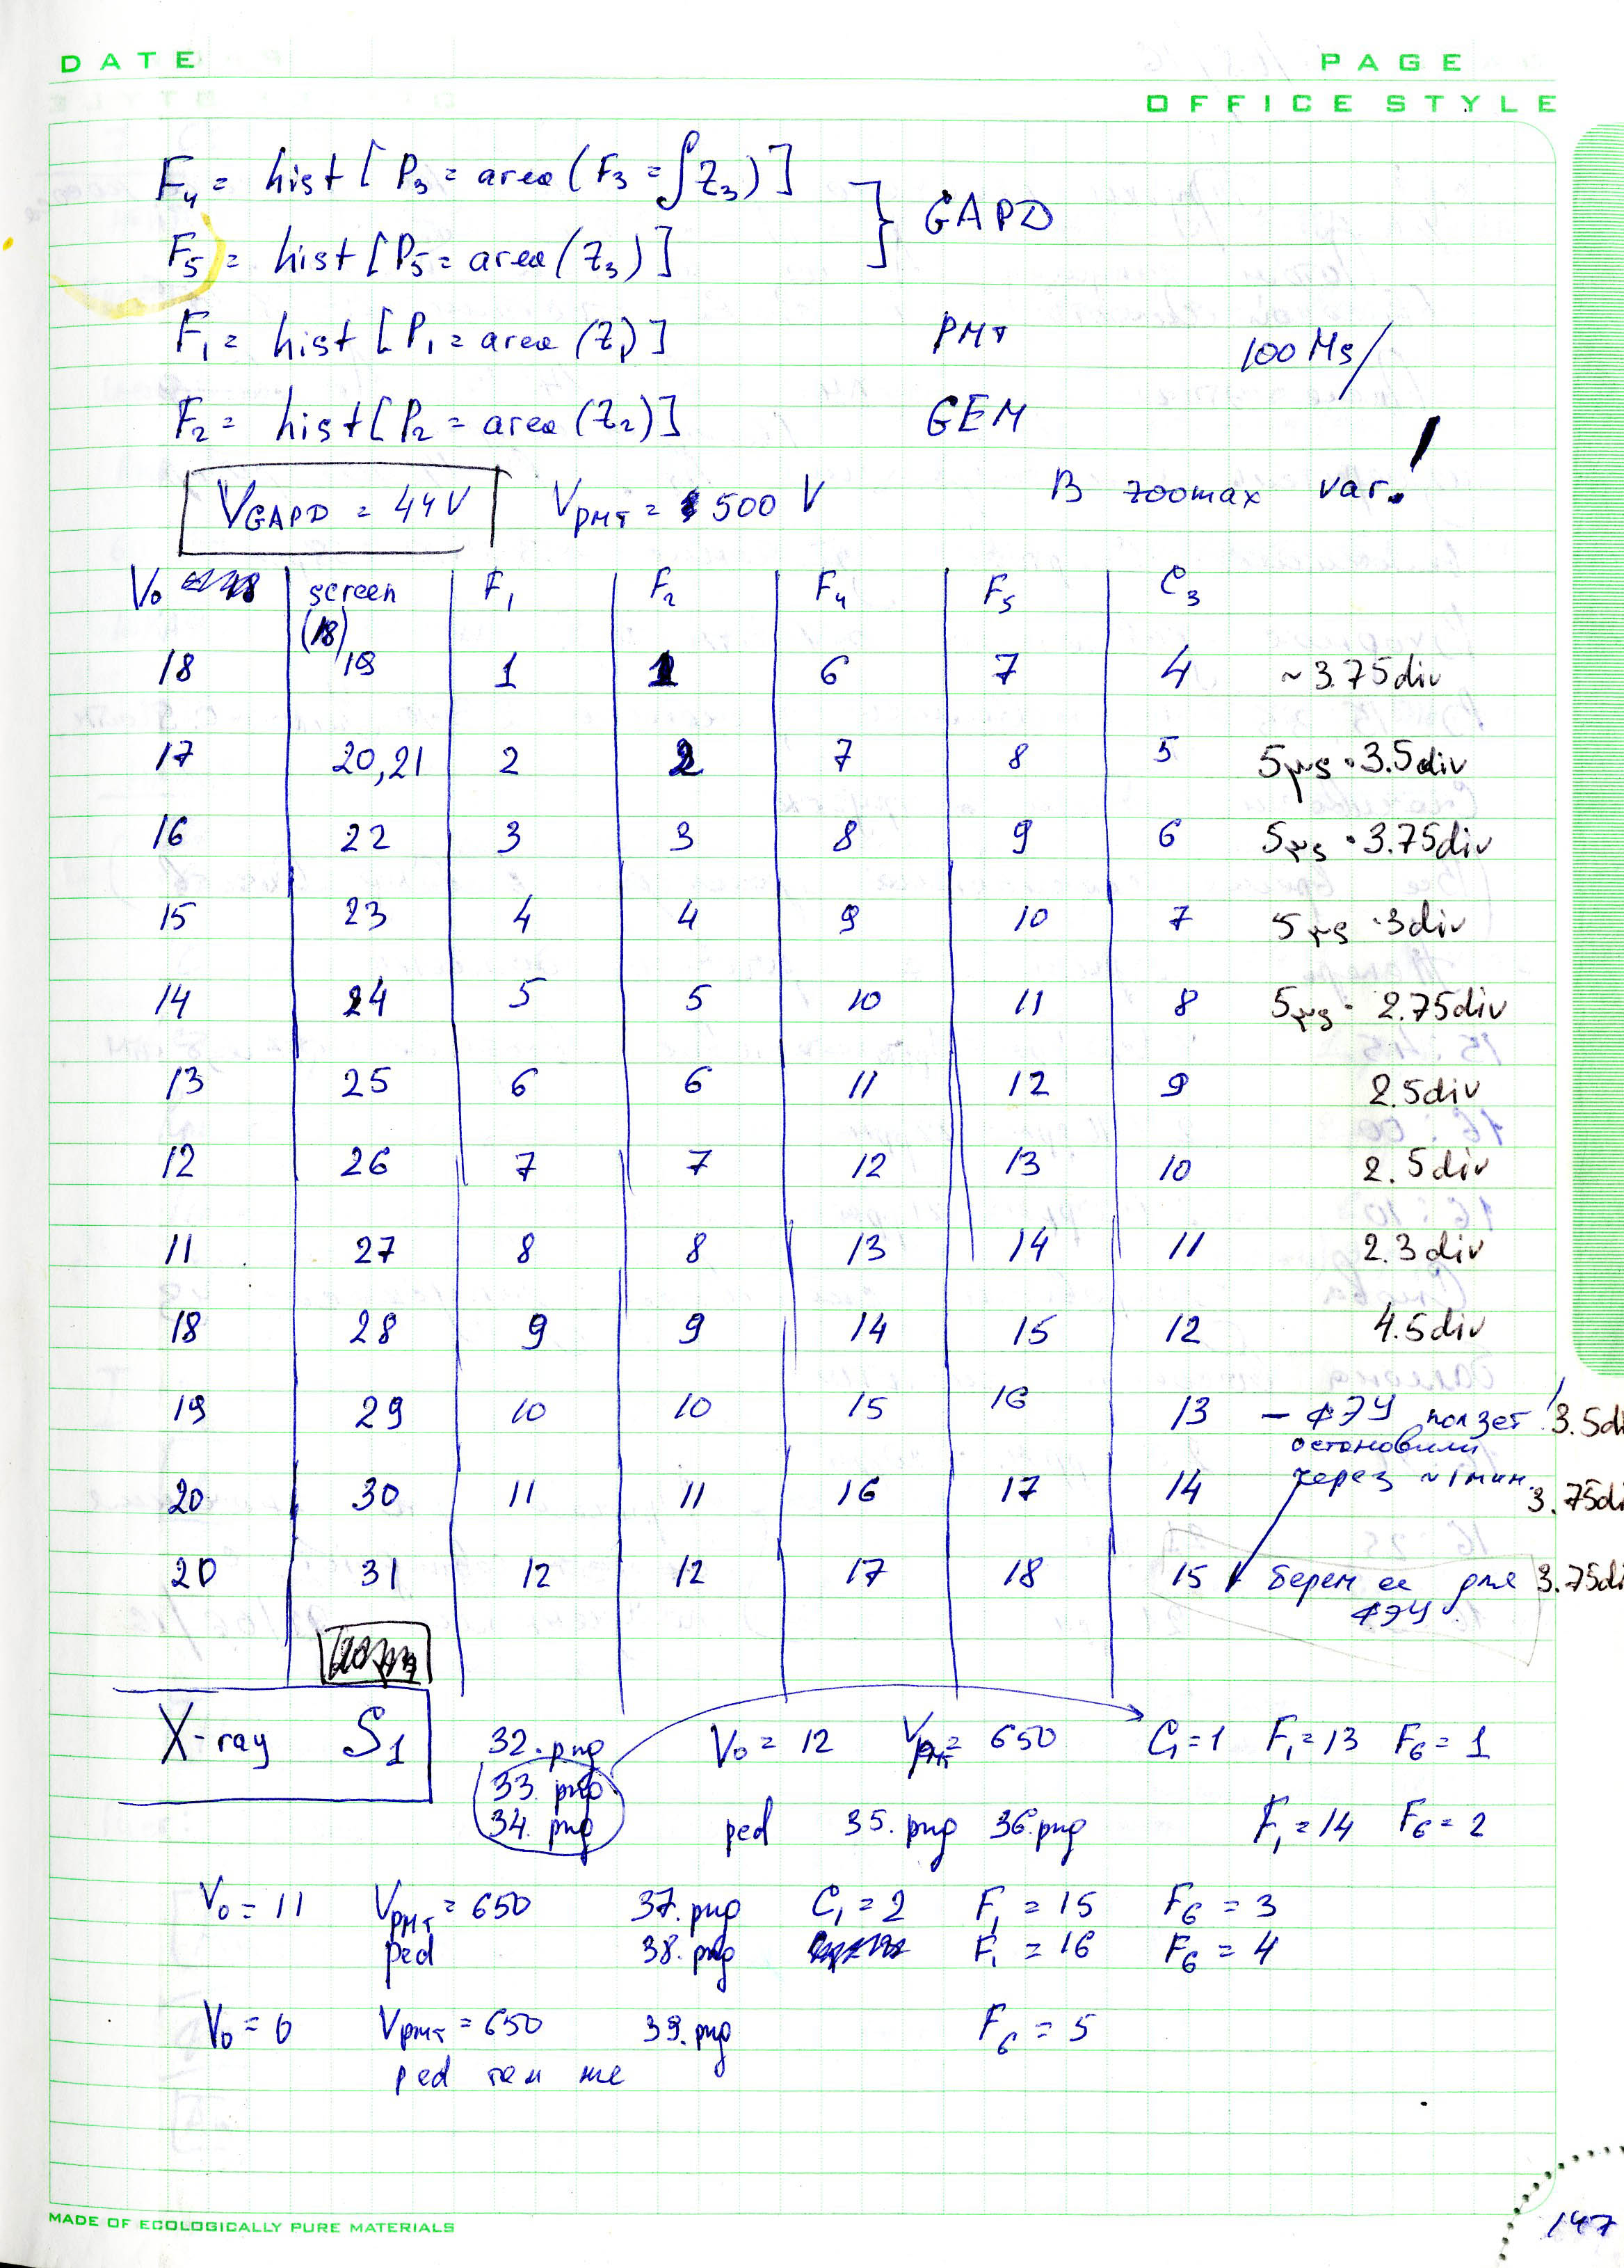 DATE
PAGE
OFFICE STYLE
F₄ = hist [ P₃ = area (F₃ = ∫Z₃) ]
F₅ = hist [ P₅ = area (Z₃) ]
} GAPD
F₁ = hist [ P₁ = area (Z₁) ] PMT 100 Ms/
F₂ = hist [ P₂ = area (Z₂) ] GEM
V_GAPD = 44V V_PMT = 500 V В zoomах var. !
V₀ screen F₁ F₂ F₄ F₅ C₃
(18)
18 19 1 1 6 7 4 ~3.75div
17 20,21 2 2 7 8 5 5μs · 3.5div
16 22 3 3 8 9 6 5μs · 3.75div
15 23 4 4 9 10 7 5μs · 3div
14 24 5 5 10 11 8 5μs · 2.75div
13 25 6 6 11 12 9 2.5div
12 26 7 7 12 13 10 2.5div
11 27 8 8 13 14 11 2.3div
18 28 9 9 14 15 12 4.5div
19 29 10 10 15 16 13 – ФЭУ ползет! 3.5di
остановили
через ~1 мин.
20 30 11 11 16 17 14 3.75di
20 31 12 12 17 18 15 берем ее для 3.75di
ФЭУ
X-ray S₁ 32.png V₀ = 12 V_PMT = 650 C₁=1 F₁=13 F₆=1
33.png
34.png ped 35.png 36.png F₁=14 F₆=2
V₀ = 11 V_PMT = 650 37.png C₁ = 2 F₁ = 15 F₆ = 3
ped 38.png F₁ = 16 F₆ = 4
V₀ = 0 V_PMT = 650 39.png F₆ = 5
ped там же
MADE OF ECOLOGICALLY PURE MATERIALS
147